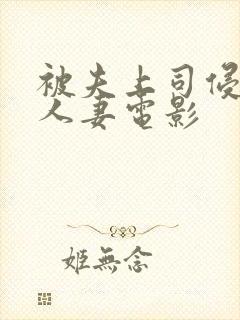 被夫上司侵
人妻電影
姬無念